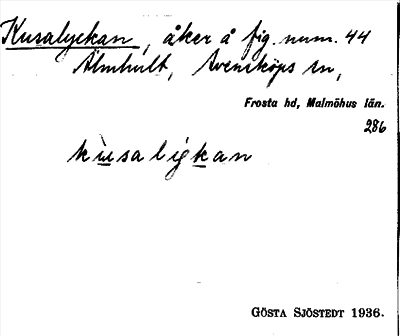 Kusalyckan, åker å fig. num. 44
Älmhult, Svensköps sn,
Frosta hd, Malmöhus län.
286
kùsaligkan
GÖSTA SJÖSTEDT 1936.